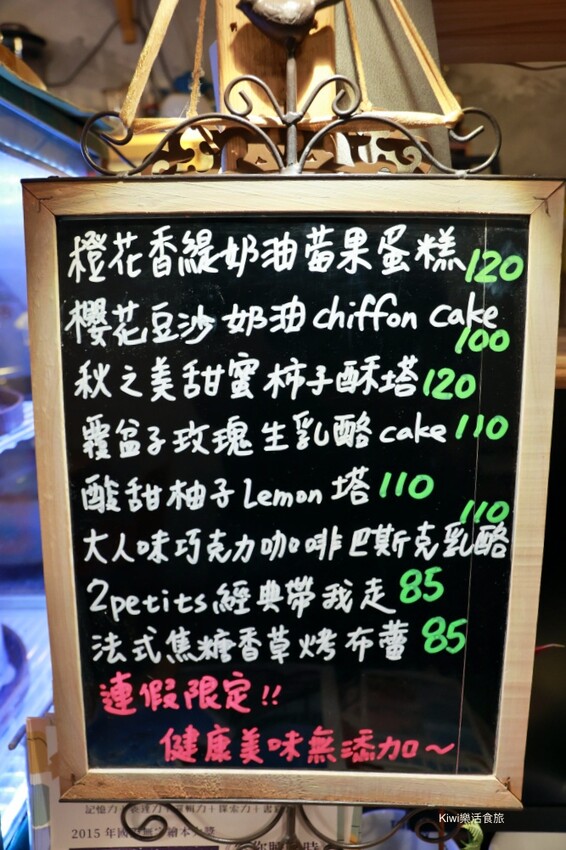 橙花香緹奶油莓果蛋糕 120
櫻花豆沙奶油 chiffon cake 100
秋之美甜蜜柿子酥塔 120
覆盆子玫瑰生乳酪 cake 110
酸甜柚子 Lemon 塔 110
大人味巧克力咖啡巴斯克乳酪 110
2petits 經典帶我走 85
法式焦糖香草烤布蕾 85
連假限定!!
健康美味無添加~
Kiwi樂活食旅